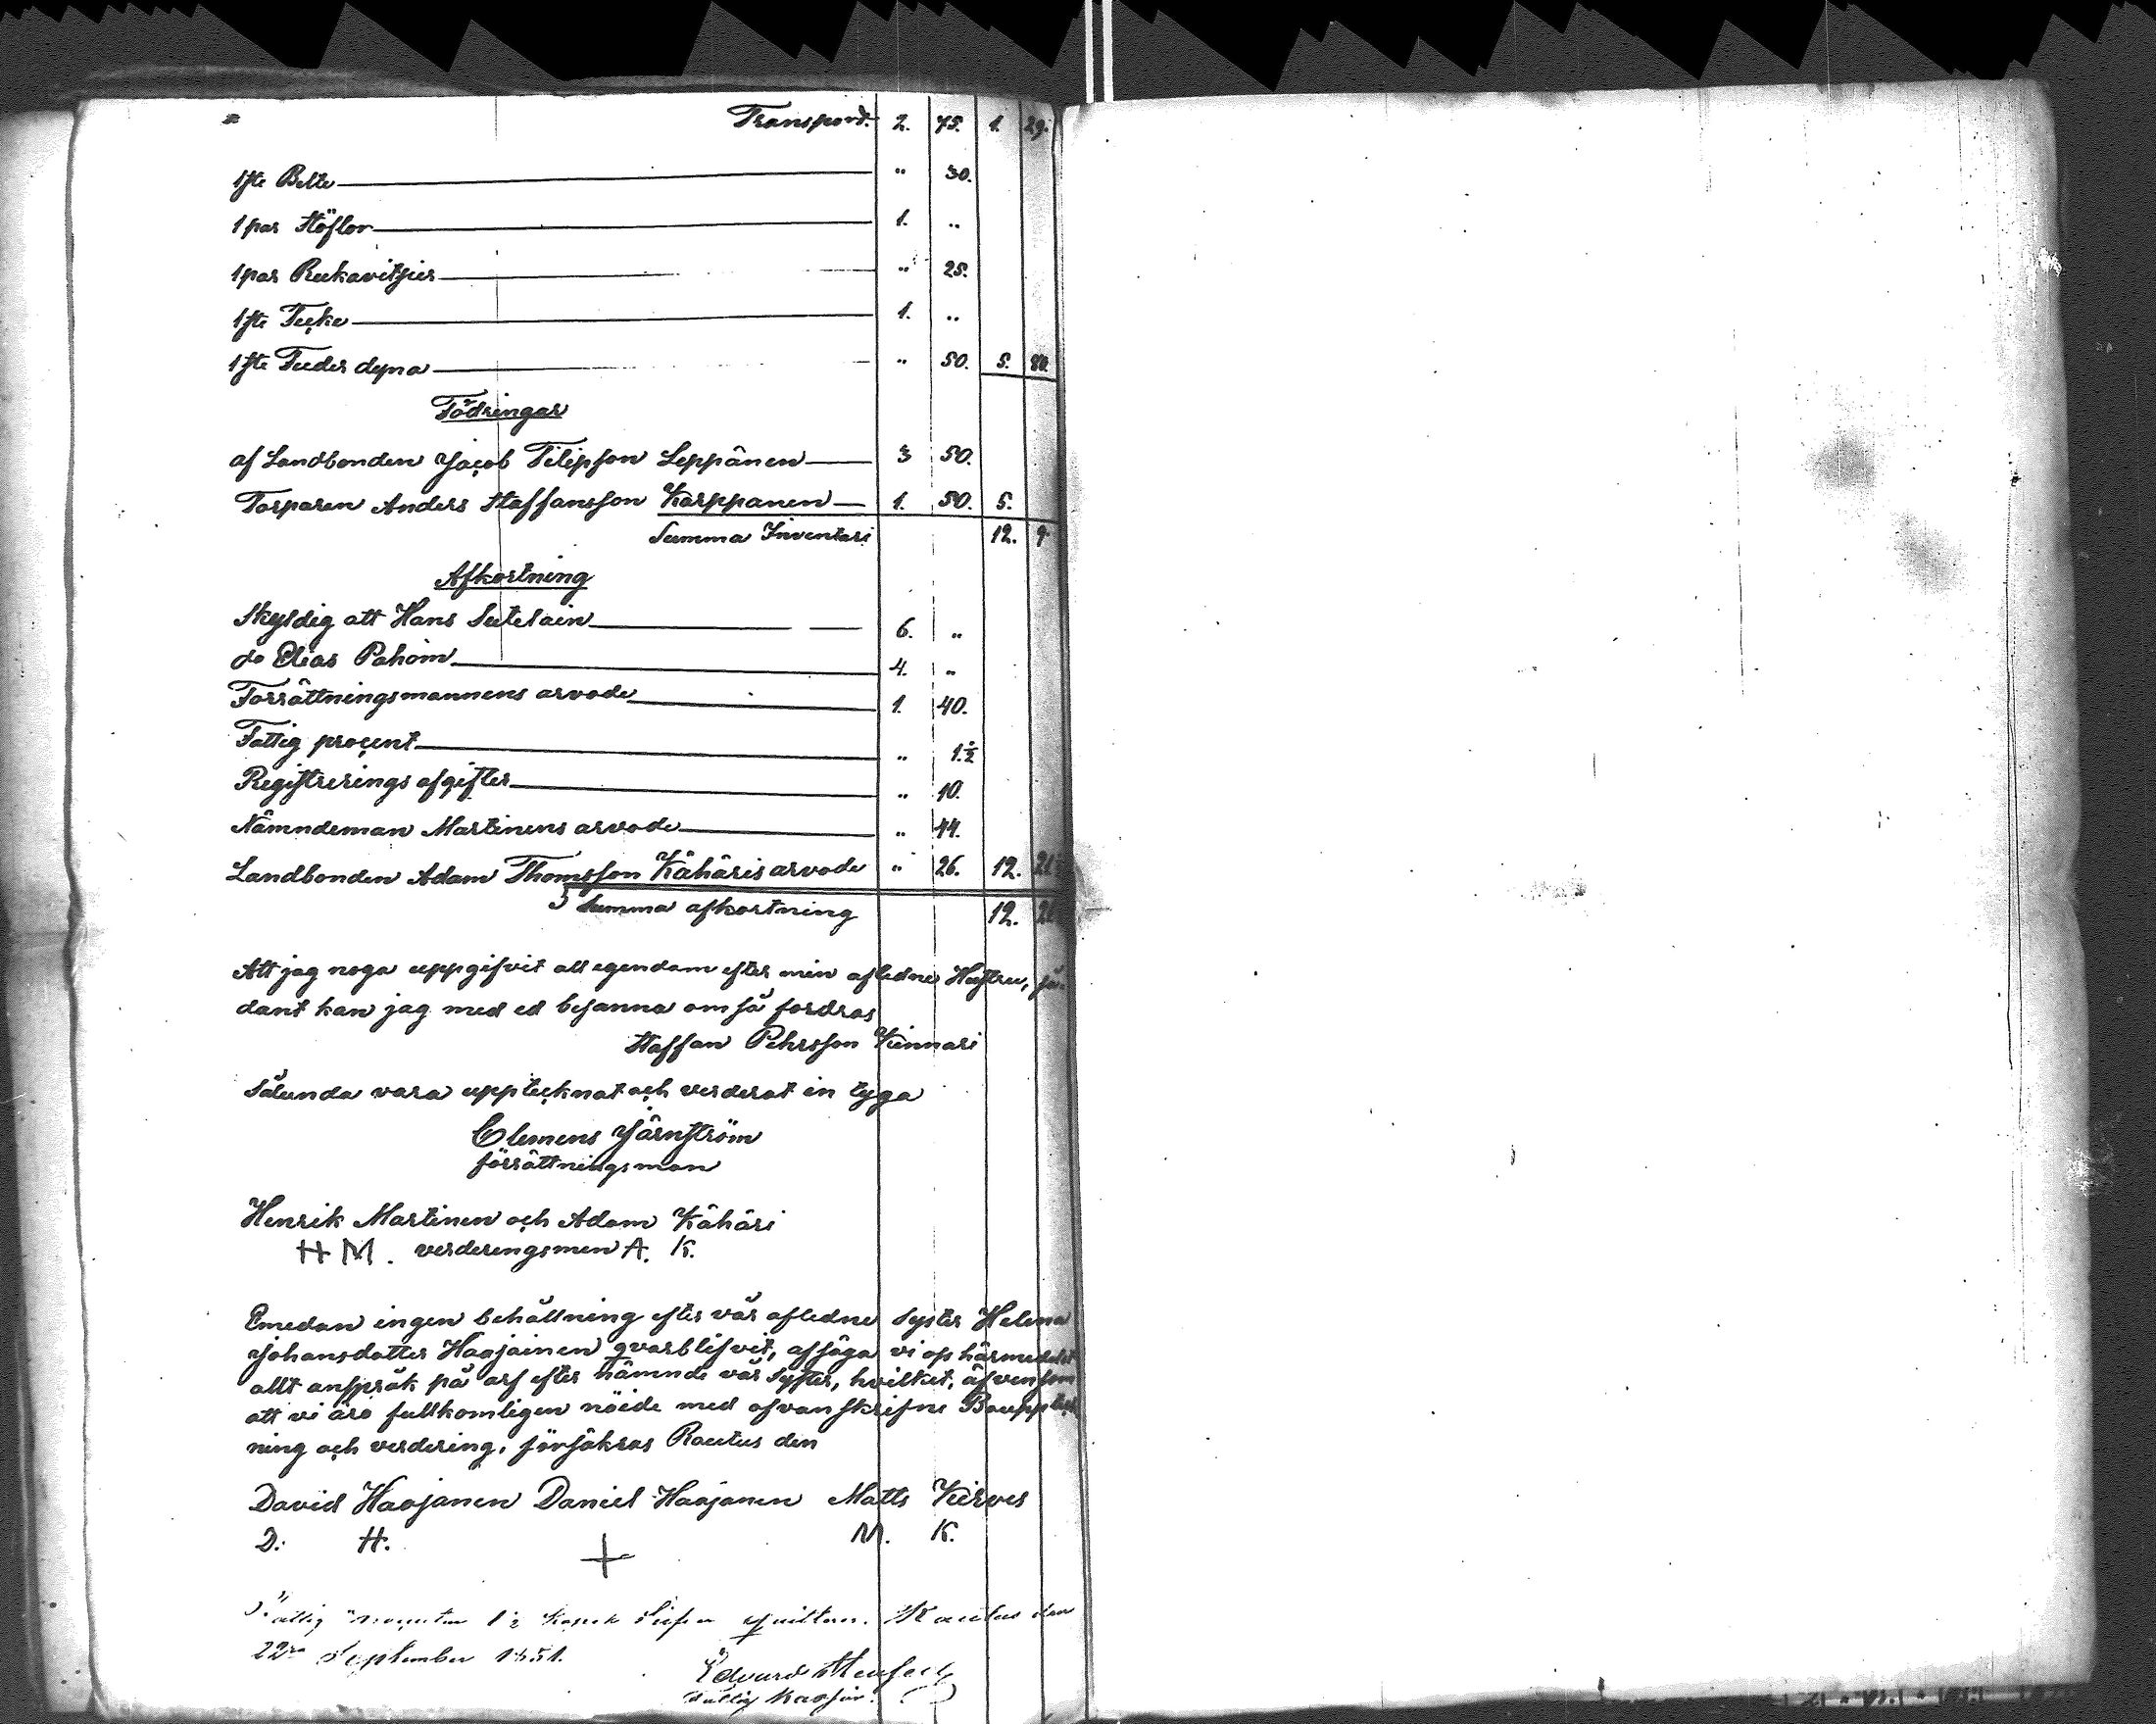 Transport. 2. 75. 1. 29.
1ste Bälte „ 30.
1 par Stöflor 1. „
1 par Rukavitsier „ 25.
1ste Tecke 1. „
1ste Feder dyna „ 50. 5. 80.
Fodringar
af Landbonden Jacob Filipsson Leppänen 3 50.
Torparen Anders Staffansson Karppanen 1. 50. 5.
Summa Inventari 12. 9.
Afkortning
Skyldig att Hans Sutelain 6. „
do Elias Pahom 4. „
Forrättningsmannens arvode 1. 40.
Fattig procent „ 1 1/2
Registrerings afgifter „ 10.
Nämndeman Martinens arvode „ 44.
Landbonden Adam Thomsson Kähäris arvode „ 26. 12. 21
Summa afkortning 12. 21
Att jag noga uppgifvit all egendom efter min afledne Hustru, så-
dant kan jag med ed besanna om så fordras
Staffan Pehrsson Kinnari
Sålunda vara upptecknat och verderat in tyga
Clemens Järnström
förrättningsman
Henrik Martinen och Adam Kähäri
H M. verderingsmen A. K.
Emedan ingen behållning efter vår afledne Syster Helena
Johansdotter Haajainen qvarblifvit, afsäga vi oss härmedelst
allt anspråk på arf efter nämnde vår Syster, hvilket, äfvensom
att vi äro fullkomligen nöide med ofvanskrifne Bouppteck
ning och verdering, försäkras Rautus den
David Haajanen Daniel Haajanen Matts Kirves
D. H. + M. K.
Fattig procenten 1 1/2 Kopek Silfver quitteras. Rautus den
22dra September 1851.
Edvard
Fattig Kassör.